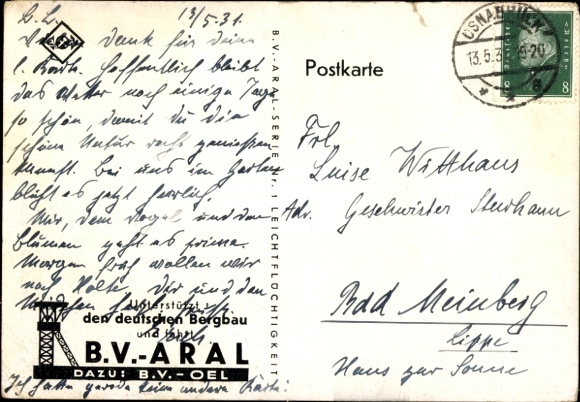 13/5.31.
B.L.
Vielen Dank für deine
l. Karte. Hoffentlich bleibt
das Wetter noch einige Tage
so schön, damit du die
schöne Natur recht genießen
kannst. Bei uns im Garten
blüht es jetzt herrlich.
Mir, dem Vogel und den
Blumen geht es prima.
Morgen früh wollen wir
nach Holte. Dir und den
Unterstützt
den deutschen Bergbau
und fahrt
B.V.-ARAL
DAZU: B.V.-OEL
Ich hatte gerade keine andere Karte!
B.V.-ARAL-SERIE Nr. 1 LEICHTFLÜCHTIGKEIT
Postkarte
OSNABRÜCK
13.5.3
8 8
Frl.
Luise Witthaus
Adr. Geschwister
Bad Meinberg
Lippe
Haus zur Sonne